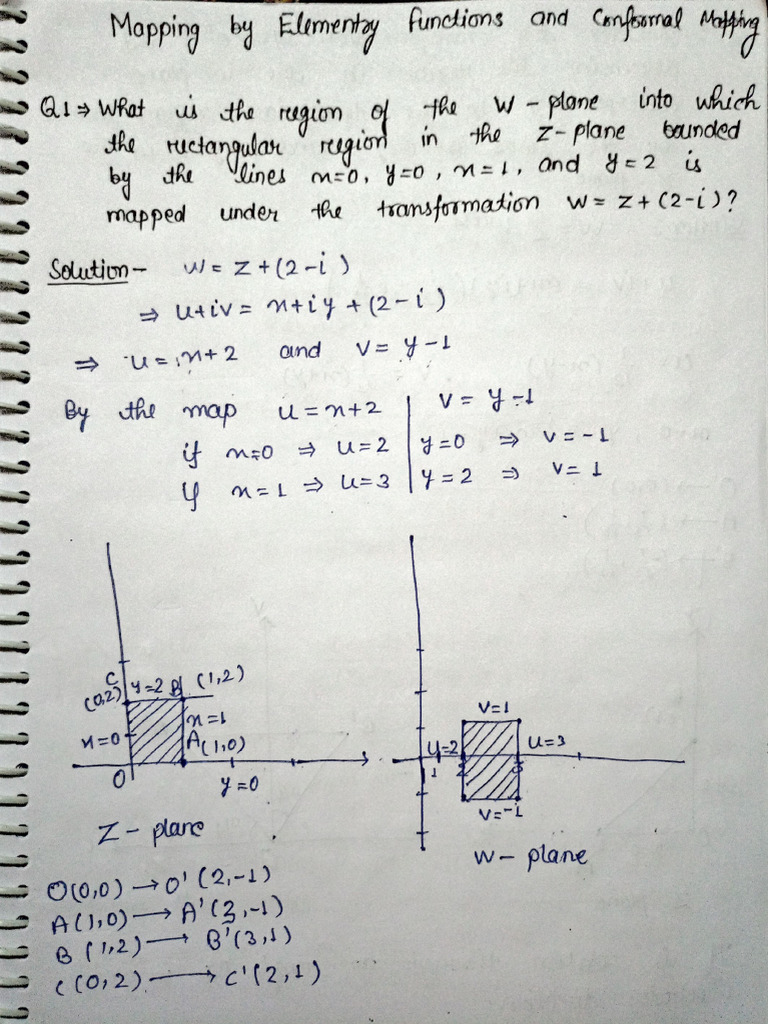 Mapping by Elementry functions and Conformal Mapping
Q1 ⇒ What is the region of the W-plane into which
the rectangular region in the Z-plane bounded
by the lines x=0, y=0, x=1, and y=2 is
mapped under the transformation W = z+(2-i)?
Solution - W = z+(2-i)
⇒ u+iv = x+iy+(2-i)
⇒ u = x+2 and v = y-1
By the map u = x+2 | v = y-1
if x=0 ⇒ u=2 | y=0 ⇒ v=-1
If x=1 ⇒ u=3 | y=2 ⇒ v=1
C
(0,2) y=2 B (1,2)
x=1
x=0 A(1,0)
O y=0
Z-plane
v=1
u=2 u=3
1 2 3
v=-1
W-plane
O(0,0) → O'(2,-1)
A(1,0) → A'(3,-1)
B(1,2) → B'(3,1)
C(0,2) → C'(2,1)